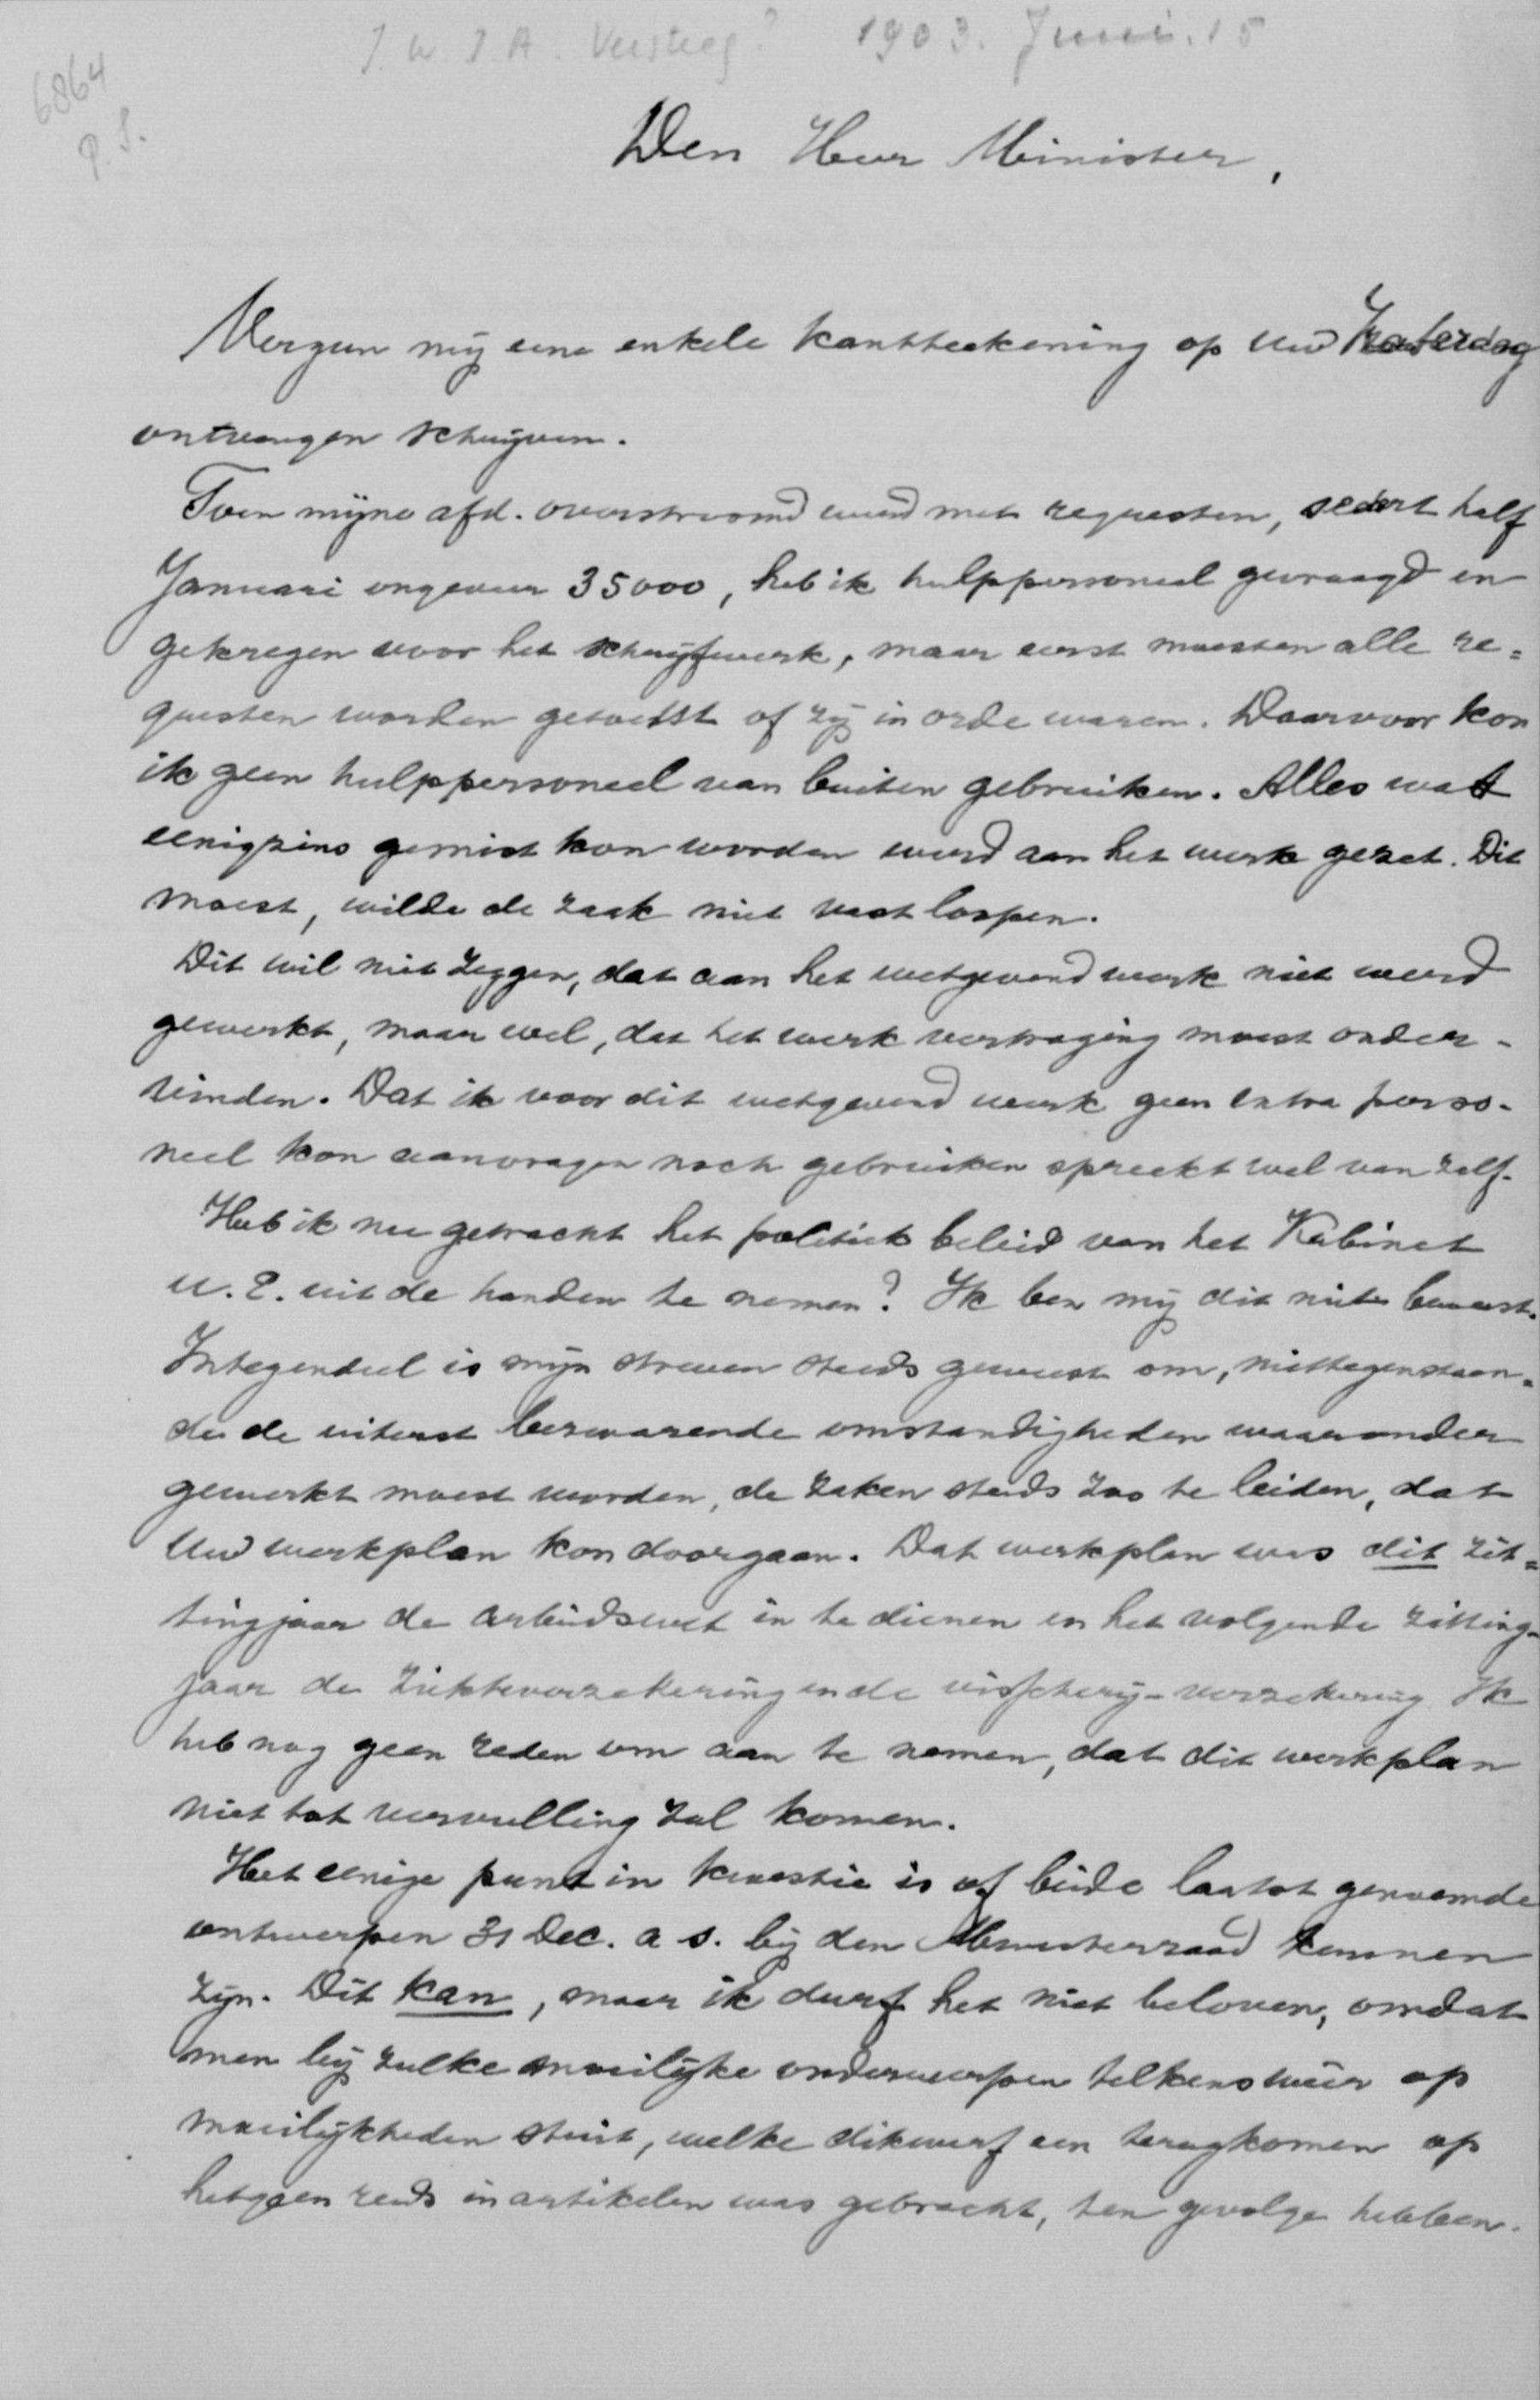 J. W J. A. Versteeg? 1903. Juni. 15
6864
P. S.
Den Heer Minister,
Vergun mij eene enkele kantteekening op Uw Zaterdag
ontvangen schrijven.
Toen mijne afd. overstroomd werd met requesten, sedert half
Januari ongeveer 35000, heb ik hulppersoneel gevraagd en
gekregen voor het schrijfwerk, maar eerst moesten alle re=
questen worden getoetst of zij in orde waren. Daarvoor kon
ik geen hulppersoneel van buiten gebruiken. Alles wat
eenigzins gemist kon worden werd aan het werk gezet. Dit
moest, wilde de zaak niet vastloopen.
Dit wil niet zeggen, dat aan het wetgevend werk niet werd
gewerkt, maar wel, dat het werk vertraging moest onder-
vinden. Dat ik voor dit wetgevend werk geen extra perso-
neel kon aanvragen noch gebruiken spreekt wel van zelf.
Heb ik nu getracht het politiek beleid van het Kabinet
U. E. uit de handen te nemen? Ik ben mij dit niet bewust.
Integendeel is mijn streven steeds geweest om, niettegenstaan=
de de uiterst bezwarende omstandigheden waaronder
gewerkt moest worden, de zaken steeds zoo te leiden, dat
Uw werkplan kon doorgaan. Dat werkplan was dit zit=
tingjaar de arbeidswet in te dienen en het volgende zitting-
jaar de ziekteverzekering en de visscherij-verzekering. Ik
heb nog geen reden om aan te nemen, dat dit werkplan
niet tot vervulling zal komen.
Het eenige punt in kwestie is of beide laatst genoemde
ontwerpen 31 Dec. a s. bij den Ministerraad kunnen
zijn. Dit kan, maar ik durf het niet beloven, omdat
men bij zulke moeilijke onderwerpen telkens weer op
moeilijkheden stuit, welke dikwerf een terugkomen op
hetgeen reeds in artikelen was gebracht, ten gevolge hebben.